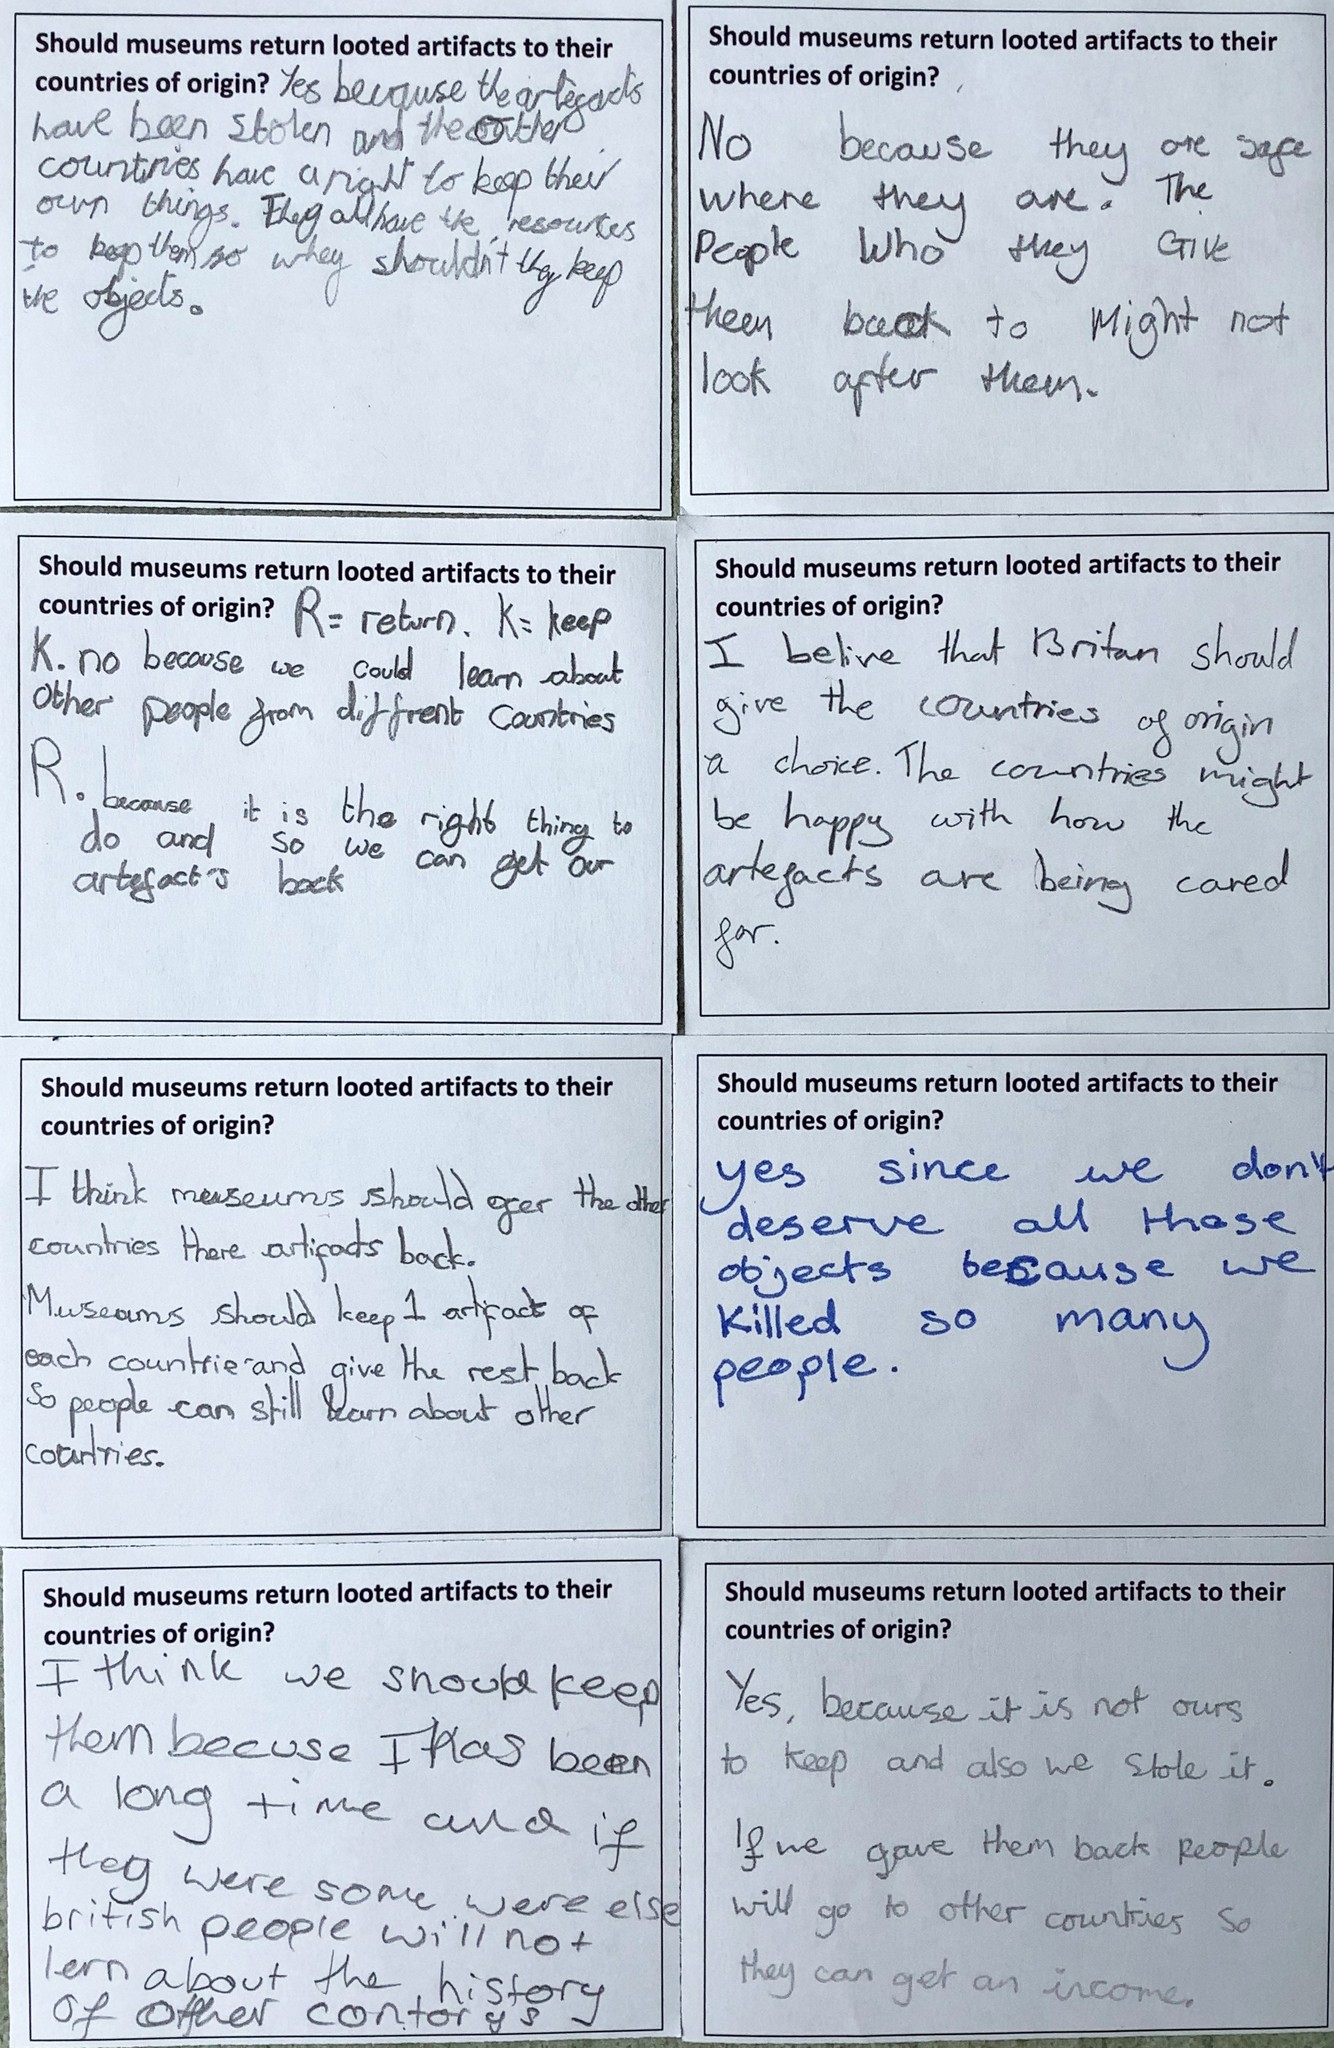 Should museums return looted artifacts to their
countries of origin? Yes because the artegacts
have been stolen and the other
countries have a right to keep their
own things. They all have the resources
to keep them so whey shouldn't they keep
the objects.
Should museums return looted artifacts to their
countries of origin?
No because they are safe
where they are. The
People Who they Give
them back to Might not
look after them.
Should museums return looted artifacts to their
countries of origin? R= return. K= keep
K. no because we could learn about
other people from diffrent Countries
R. because it is the right thing to
do and so we can get our
artefact's back
Should museums return looted artifacts to their
countries of origin?
I belive that Britan should
give the countries of origin
a choice. The countries might
be happy with how the
artefacts are being cared
for.
Should museums return looted artifacts to their
countries of origin?
I think museums should offer the other
countries there artifacts back.
Museums should keep 1 artifact of
each countrie and give the rest back
So people can still learn about other
countries.
Should museums return looted artifacts to their
countries of origin?
yes since we don't
deserve all those
objects because we
killed so many
people.
Should museums return looted artifacts to their
countries of origin?
I think we should keep
them becuse I thas been
a long time and if
they were some were else
british people will not
lern about the history
of other contorys
Should museums return looted artifacts to their
countries of origin?
Yes, because it is not ours
to keep and also we stole it.
If we gave them back people
will go to other countries so
they can get an income.